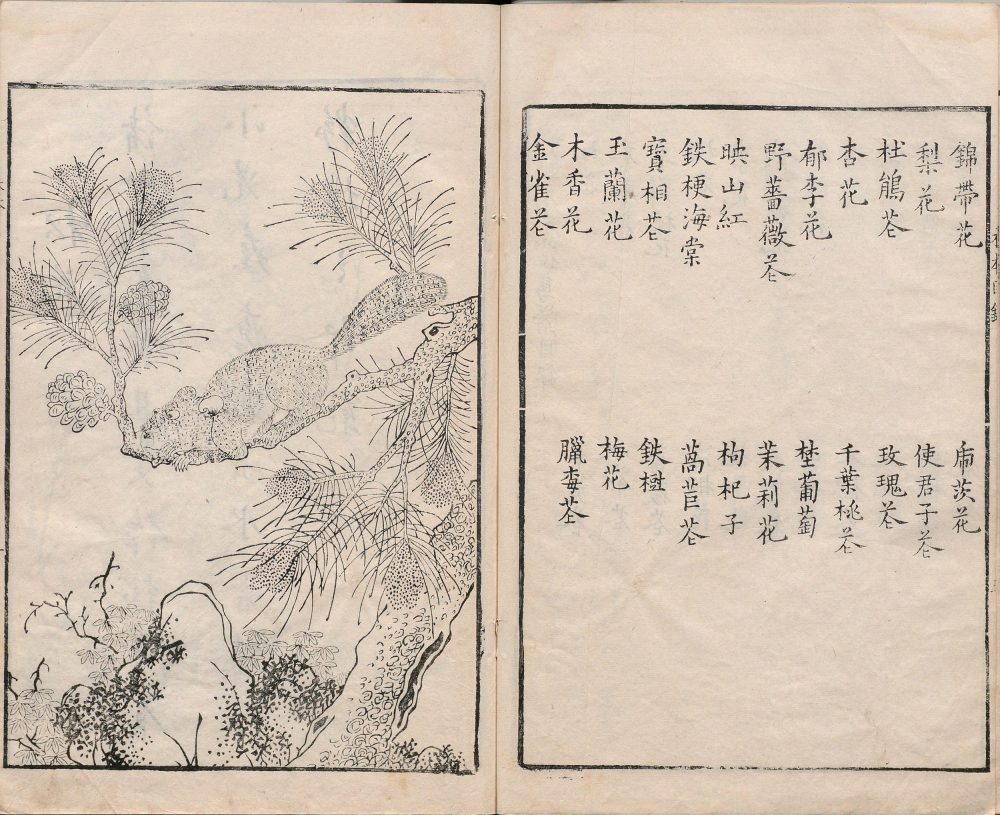 錦帶花
梨花
杜鵑花
杏花
郁李花
野薔薇花
映山紅
鉄梗海棠
寶相花
玉蘭花
木香花
金雀花
虎茨花
使君子花
玫瑰花
千葉桃花
埜葡萄
茉莉花
枸杞子
萵苣花
鉄樹
梅花
臘梅花